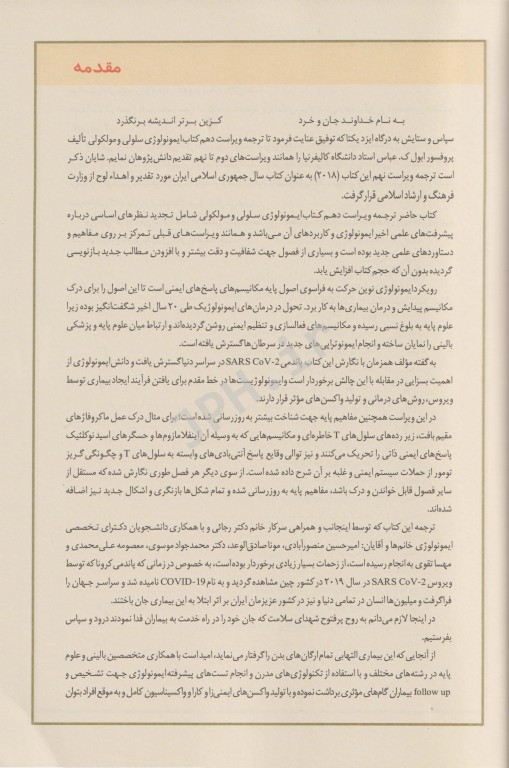 مقدمه
به نام خداوند جان و خرد کزین برتر اندیشه برنگذرد
سپاس و ستایش به درگاه ایزد یکتا که توفیق عنایت فرمود تا ترجمه ویراست دهم کتاب ایمونولوژی سلولی و مولکولی تألیف
پروفسور ابول ک. عباس استاد دانشگاه کالیفرنیا را همانند ویراست‌های دوم تا نهم تقدیم دانش‌پژوهان نمایم. شایان ذکر
است ترجمه ویراست نهم این کتاب (۲۰۱۸) به عنوان کتاب سال جمهوری اسلامی ایران مورد تقدیر و اهداء لوح از وزارت
فرهنگ و ارشاد اسلامی قرار گرفت.
کتاب حاضر ترجمه ویراست دهم کتاب ایمونولوژی سلولی و مولکولی شامل تجدید نظرهای اساسی درباره
پیشرفت‌های علمی اخیر ایمونولوژی و کاربردهای آن می‌باشد و همانند ویراست‌های قبلی تمرکز بر روی مفاهیم و
دستاوردهای علمی جدید بوده است و بسیاری از فصول جهت شفافیت و دقت بیشتر و با افزودن مطالب جدید بازنویسی
گردیده بدون آن که حجم کتاب افزایش یابد.
رویکرد ایمونولوژی نوین حرکت به فراسوی اصول پایه مکانیسم‌های پاسخ‌های ایمنی است تا این اصول را برای درک
مکانیسم پیدایش و درمان بیماری‌ها به کار برد. تحول در درمان‌های ایمونولوژیک طی ۲۰ سال اخیر شگفت‌انگیز بوده زیرا
علوم پایه به بلوغ نسبی رسیده و مکانیسم‌های فعالسازی و تنظیم ایمنی روشن گردیده‌اند و ارتباط میان علوم پایه و پزشکی
بالینی را نمایان ساخته و انجام ایمونوتراپی‌های جدید در سرطان‌ها گسترش یافته است.
به گفته مؤلف همزمان با نگارش این کتاب پاندمی SARS CoV-2 در سراسر دنیا گسترش یافت و دانش ایمونولوژی از
اهمیت بسزایی در مقابله با این چالش برخوردار است و ایمونولوژیست‌ها در خط مقدم برای یافتن فرآیند ایجاد بیماری توسط
ویروس، روش‌های درمانی و تولید واکسن‌های مؤثر قرار دارند.
در این ویراست همچنین مفاهیم پایه جهت شناخت بیشتر به روزرسانی شده است؛ برای مثال درک عمل ماکروفاژهای
مقیم بافت، زیر رده‌های سلول‌های T خاطره‌ای و مکانیسم‌هایی که به وسیله آن اینفلامازوم‌ها و حسگرهای اسید نوکلئیک
پاسخ‌های ایمنی ذاتی را تحریک می‌کنند و نیز توالی وقایع پاسخ آنتی‌بادی‌های وابسته به سلول‌های T و چگونگی گریز
تومور از حملات سیستم ایمنی و غلبه بر آن شرح داده شده است. از سوی دیگر هر فصل طوری نگارش شده که مستقل از
سایر فصول قابل خواندن و درک باشد، مفاهیم پایه به روزرسانی شده و تمام شکل‌ها بازنگری و اشکال جدید نیز اضافه
شده‌اند.
ترجمه این کتاب که توسط اینجانب و همراهی سرکار خانم دکتر رجائی و با همکاری دانشجویان دکترای تخصصی
ایمونولوژی خانم‌ها و آقایان: امیرحسین منصورآبادی، مونا صادق‌الوعد، دکتر محمدجواد موسوی، معصومه علی‌محمدی و
مهسا تقوی به انجام رسیده است، از زحمات بسیار زیادی برخوردار بوده است، به خصوص در زمانی که پاندمی کرونا که توسط
ویروس SARS CoV-2 در سال ۲۰۱۹ در کشور چین مشاهده گردید و به نام COVID-19 نامیده شد و سراسر جهان را
فراگرفت و میلیون‌ها انسان در تمامی دنیا و نیز در کشور عزیزمان ایران بر اثر ابتلا به این بیماری جان باختند.
در اینجا لازم می‌دانم به روح پرفتوح شهدای سلامت که جان خود را در راه خدمت به بیماران فدا نمودند درود و سپاس
بفرستیم.
از آنجایی که این بیماری التهابی تمام ارگان‌های بدن را گرفتار می‌نماید، امید است با همکاری متخصصین بالینی و علوم
پایه در رشته‌های مختلف و با استفاده از تکنولوژی‌های مدرن و انجام تست‌های پیشرفته ایمونولوژی جهت تشخیص و
follow up بیماران گام‌های مؤثری برداشت نموده و با تولید واکسن‌های ایمنی‌زا و کارا و واکسیناسیون کامل و به موقع افراد بتوان
JPH.ir